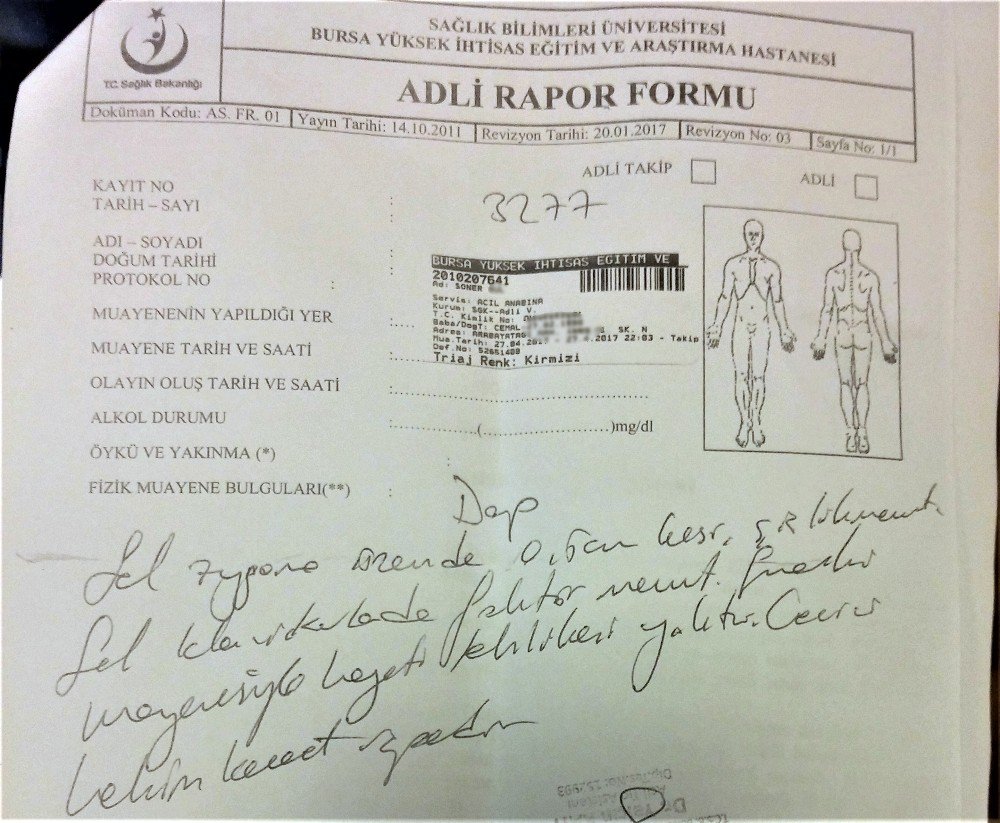 SAĞLIK BİLİMLERİ ÜNİVERSİTESİ
BURSA YÜKSEK İHTİSAS EĞİTİM VE ARAŞTIRMA HASTANESİ
T.C. Sağlık Bakanlığı
ADLİ RAPOR FORMU
Doküman Kodu: AS. FR. 01 Yayın Tarihi: 14.10.2011 Revizyon Tarihi: 20.01.2017 Revizyon No: 03 Sayfa No: 1/1
ADLİ TAKİP ADLİ
KAYIT NO
TARİH – SAYI : 3277
ADI – SOYADI :
DOĞUM TARİHİ
PROTOKOL NO :
BURSA YÜKSEK İHTİSAS EĞİTİM VE
2010207641
Ad: SONER
Servis: ACİL ANABİNA
Kurum: SGK--Adli V.
T.C. Kimlik No:
Baba/DogT: CEMAL
Adres: SK. N
Mua.Tarih: 27.04.2017 22:03 - Takip
Def.No: 52651400
Triaj Renk: Kirmizi
MUAYENENİN YAPILDIĞI YER :....
MUAYENE TARİH VE SAATİ :
OLAYIN OLUŞ TARİH VE SAATİ :
ALKOL DURUMU :....................(........................)mg/dl
ÖYKÜ VE YAKINMA (*) :
FİZİK MUAYENE BULGULARI(**) :
Darp
Sol üzerinde 0,5cm kesi,
Sol klavikulada mevcut.
hayati tehlikesi yoktur.
hekim